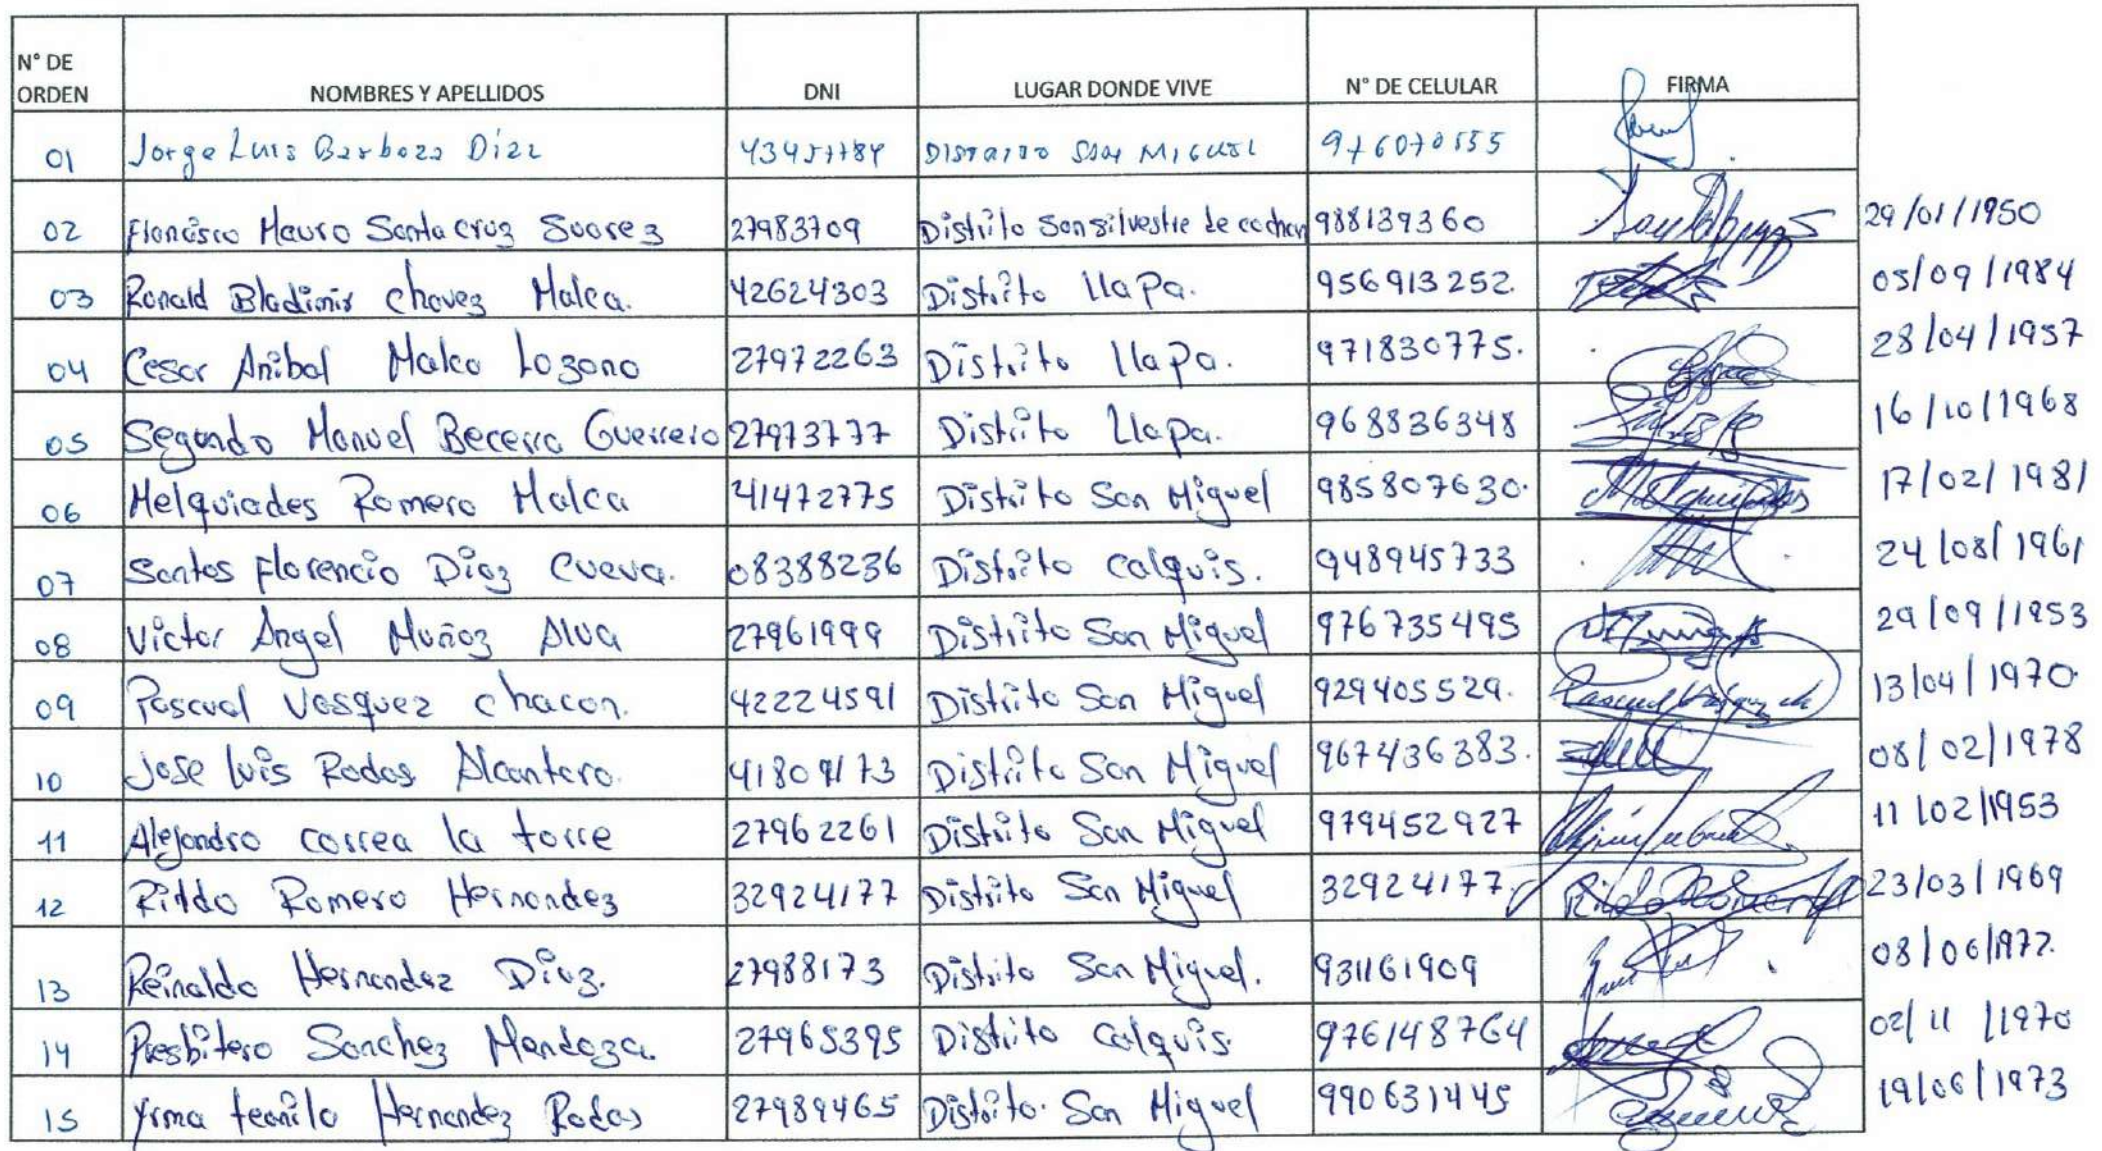 N° DE ORDEN NOMBRES Y APELLIDOS DNI LUGAR DONDE VIVE N° DE CELULAR FIRMA
01 Jorge Luis Barboza Díaz DISTRITO SAN MIGUEL 976070555
02 Francisco Mauro Santa cruz Suarez 27983709 Distrito San silvestre de cochan 988139360 29/01/1950
03 Ronald Bladimir chavez Malca. 42624303 Distrito llapa. 956913252. 05/09/1984
04 Cesar Anibal Malca Lozano 27972263 Distrito llapa. 971830775. 28/04/1957
05 Segundo Manuel Becerra Guerrero 27973777 Distrito Llapa. 968836348 16/10/1968
06 Melquiades Romero Malca 41472775 Distrito San Miguel 985807630. Melquiades 17/02/1981
07 Santos Florencio Diaz Cueva. 08388236 Distrito Calquis. 948945733 24/08/1961
08 Victor Angel Muñoz Alva 27961999 Distrito San Miguel 976735495 29/09/1953
09 Pascual Vasquez chacon. 42224591 Distrito San Miguel 929405529. Pascual Vasquez ch 13/04/1970
10 Jose luis Rodas Alcantara. 41809173 Distrito San Miguel 967436383. 08/02/1978
11 Alejandro correa la torre 27962261 Distrito San Miguel 979452927 11/02/1953
12 Rildo Romero Hernandez 32924177 Distrito San Miguel 32924177 Rildo Romero H 23/03/1969
13 Reinaldo Hernandez Diaz. 27988173 Distrito San Miguel. 931161909 08/06/1972.
14 Presbitero Sanchez Mendoza. 27965395 Distrito Calquis. 976148764 02/11/1970
15 Yrma teonila Hernandez Rodas 27989465 Distrito. San Miguel 990631445 19/06/1973